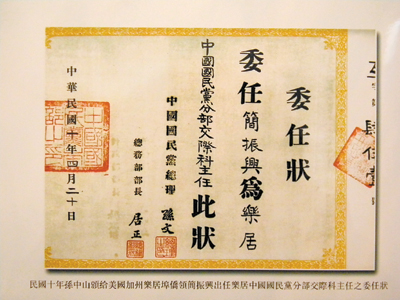 委任狀
委任簡振興為樂居
中國國民黨分部交際科主任此狀
中國國民黨總理 孫文
總務部部長 居正
中華民國十年四月二十日
民國十年孫中山頒給美國加州樂居埠僑領簡振興出任樂居中國國民黨分部交際科主任之委任狀